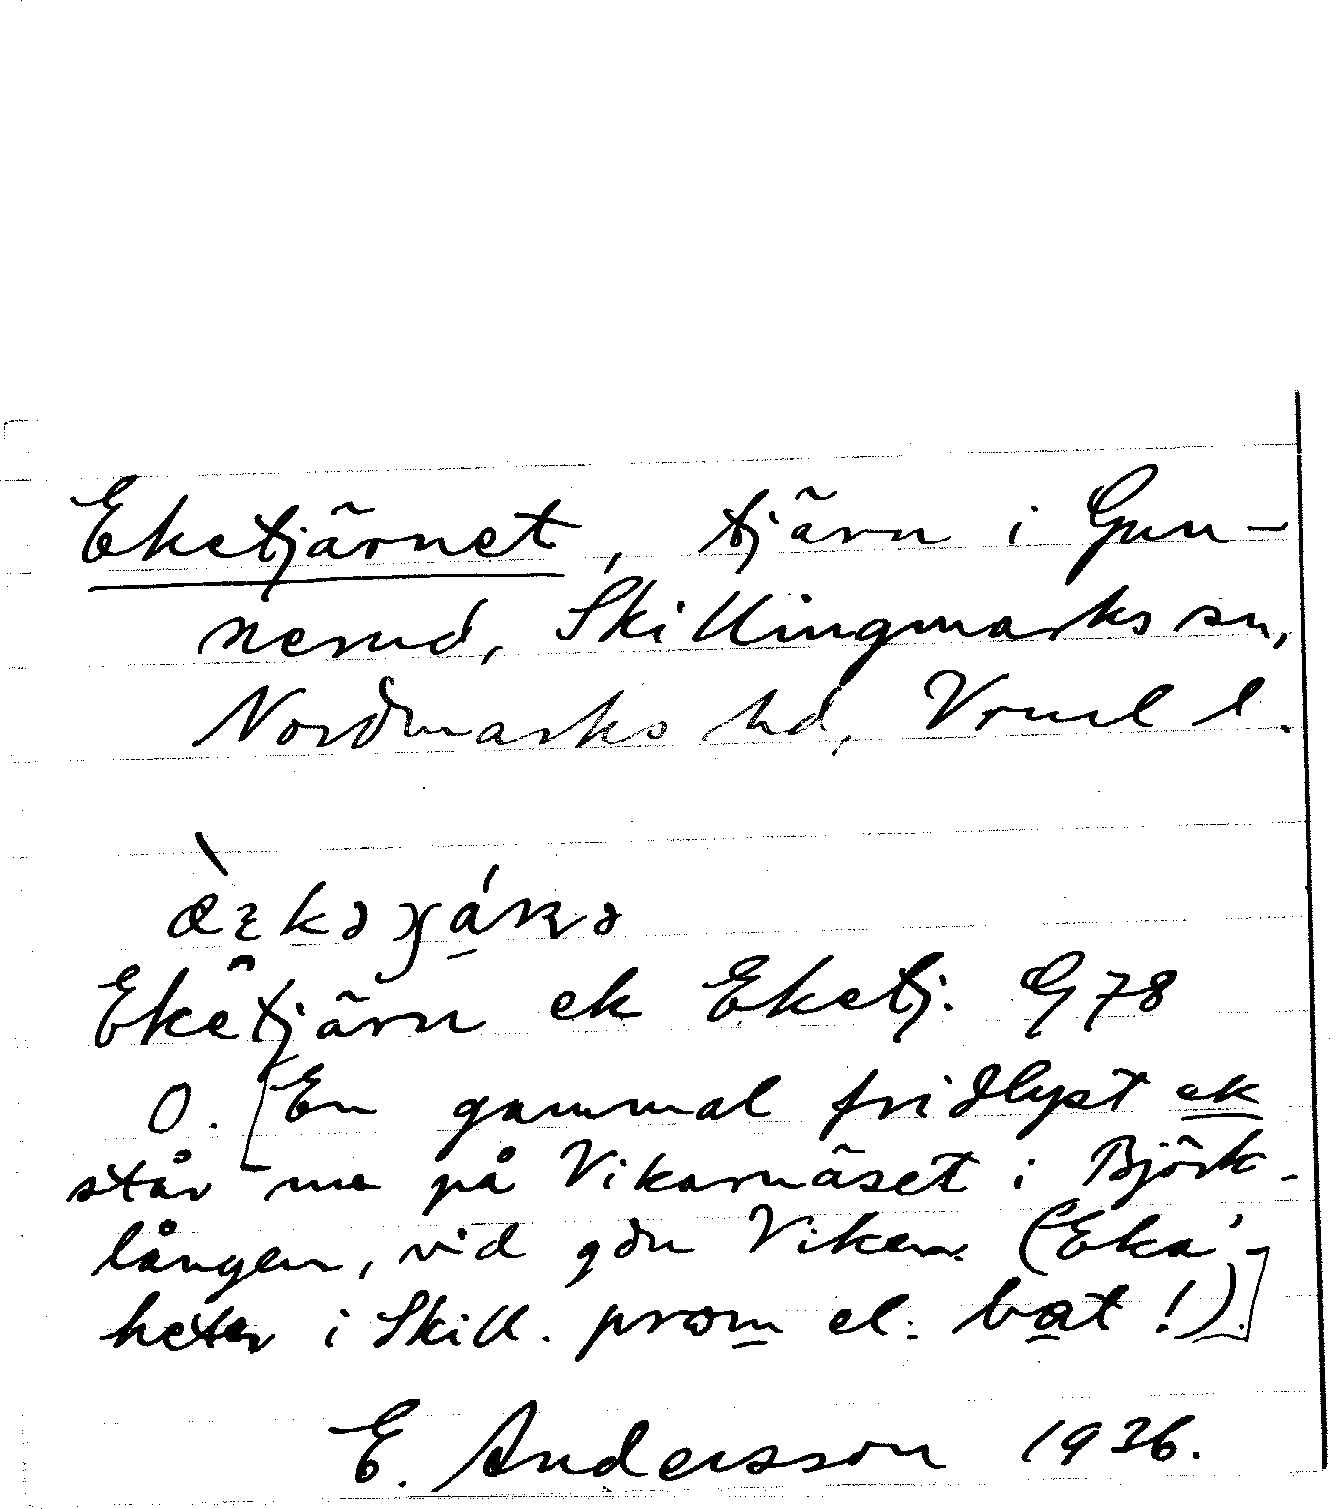 Eketjärnet, tjärn i Gun-
nerud, Skillingmarks sn,
Nordmarks hd, Vrml l.
Eketjärn ek Eketj. G 78
O. [En gammal fridlyst ek
står på Vikarnäset i Björk-
lången, vid gdn Viken ('Eka'
heter i Skill. pråm el. bat!).]
E. Andersson 1936.